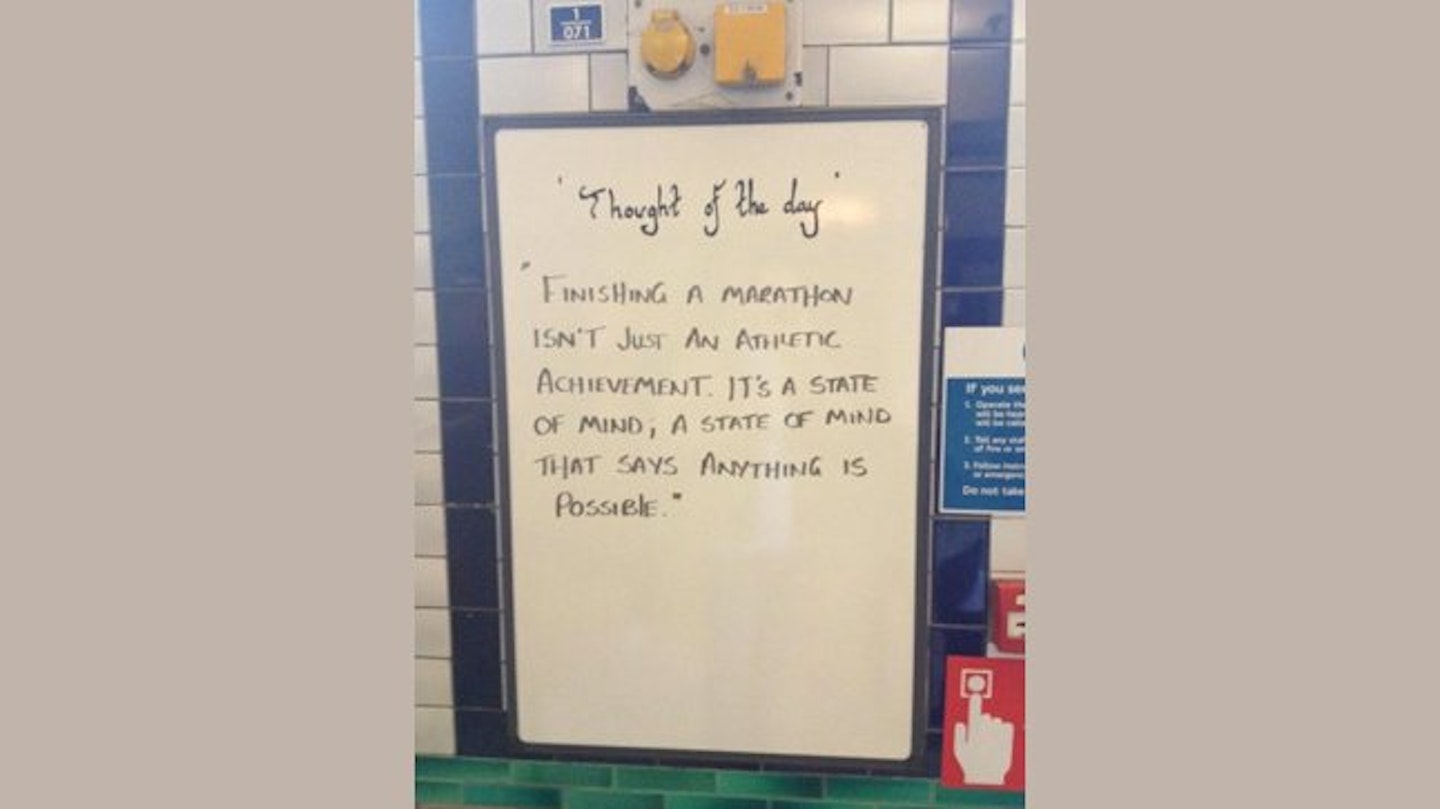 1
071
' Thought of the day '
"FINISHING A MARATHON
ISN'T JUST AN ATHLETIC
ACHIEVEMENT. IT'S A STATE
OF MIND; A STATE OF MIND
THAT SAYS ANYTHING IS
POSSIBLE."
If you see
1. Operate the
will be
will be
2. Tell any
of fire or
3. Follow
or
Do not take